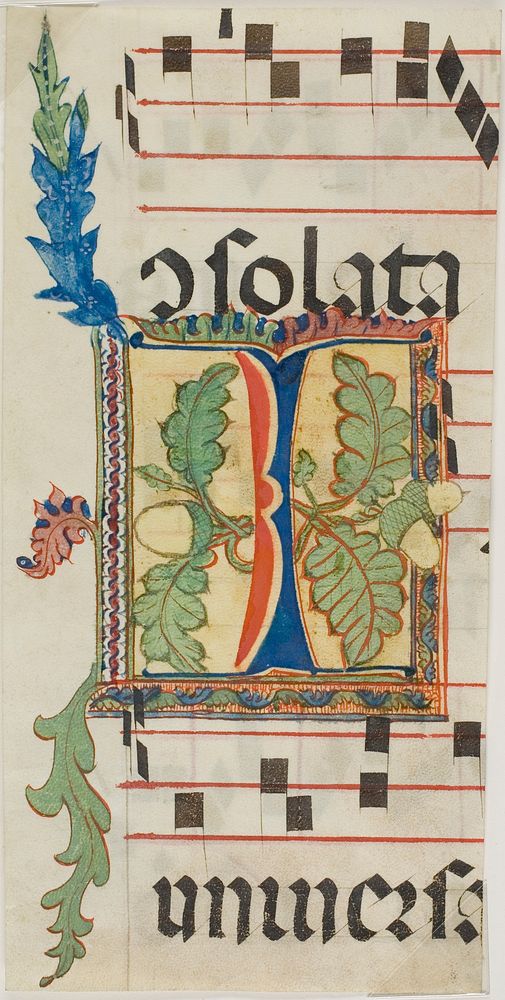 ↄſolata
I
uniuerſa